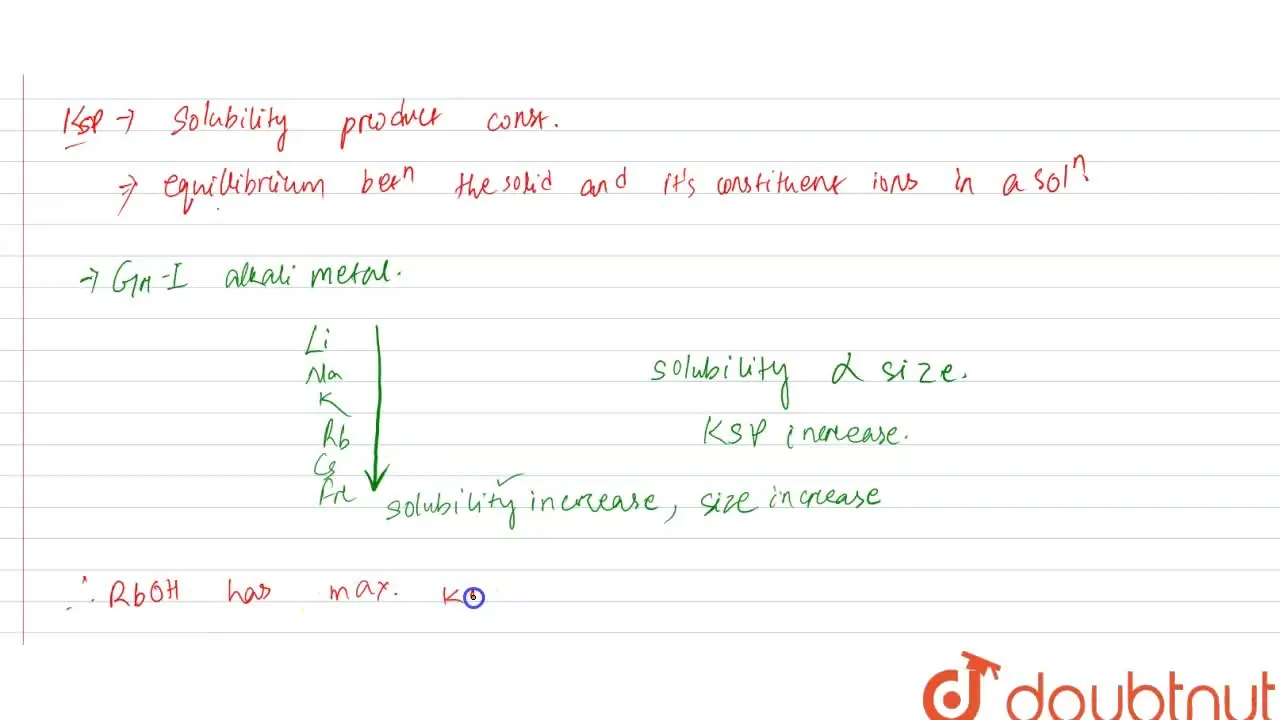 Ksp → Solubility product const.
→ equillibrium betⁿ the solid and it's constituent ions in a solⁿ.
→ Gr-I alkali metal.
Li
Na
K
Rb
Cs
Fr
solubility α size.
KSP increase.
solubility increase, size increase
∴ RbOH has max. K
doubtnut